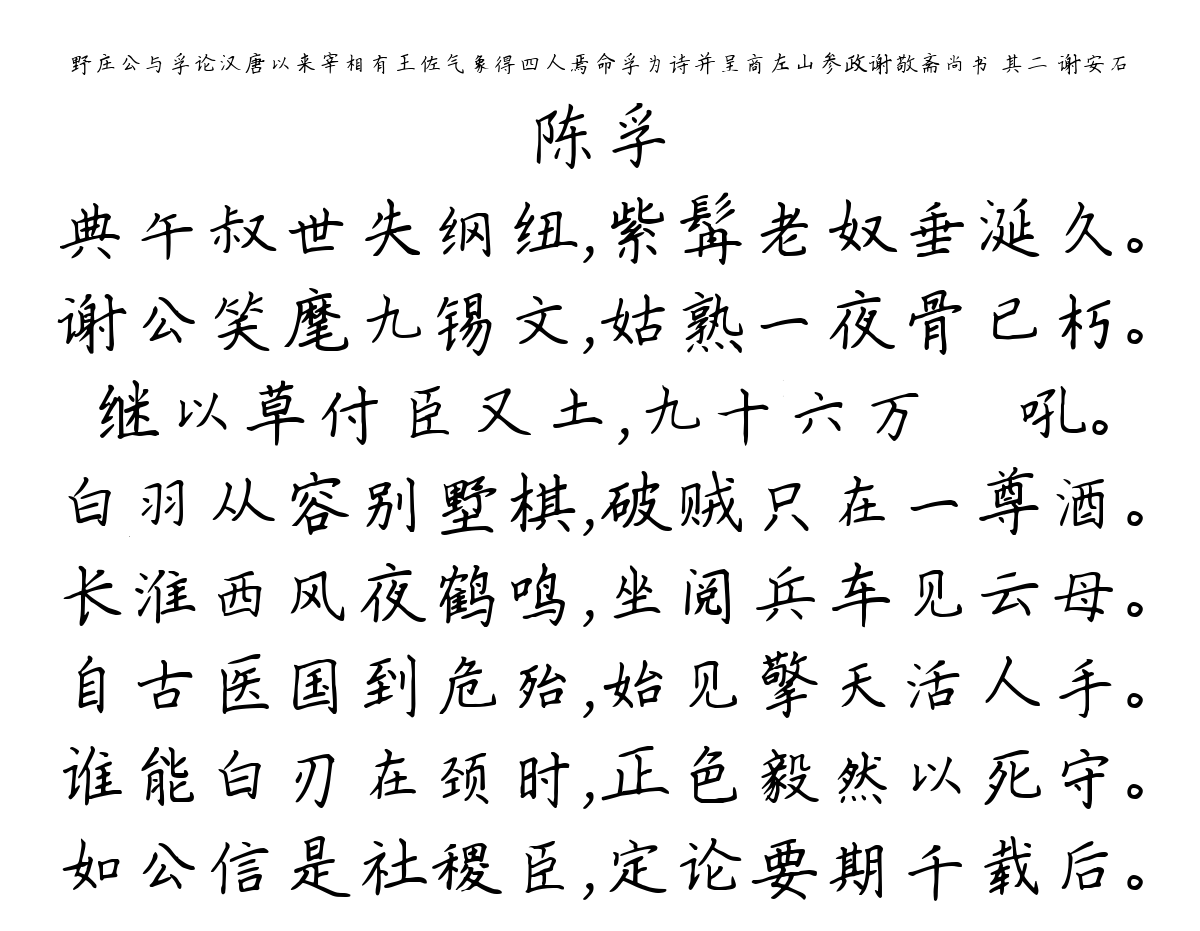 野庄公与孚论汉唐以来宰相有王佐气象得四人焉命孚为诗并呈商左山参政谢敬斋尚书 其二 谢安石
陈孚
典午叔世失纲纽,紫髯老奴垂涎久。
谢公笑麾九锡文,姑熟一夜骨已朽。
继以草付臣又土,九十六万 吼。
白羽从容别墅棋,破贼只在一尊酒。
长淮西风夜鹤鸣,坐阅兵车见云母。
自古医国到危殆,始见擎天活人手。
谁能白刃在颈时,正色毅然以死守。
如公信是社稷臣,定论要期千载后。